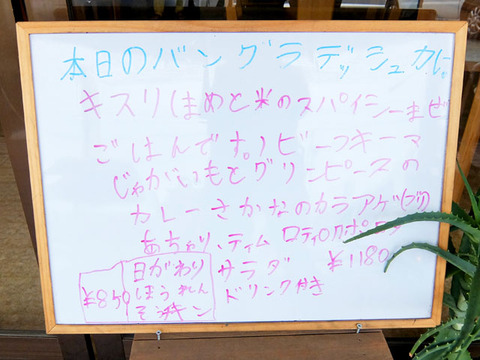 本日のバングラデッシュカレー
キスリ(まめと米のスパイシーまぜ
ごはんです。)ビーフキーマ
じゃがいもとグリンピースの
カレーさかなのカラアゲ
あちゃり、ティム ロティ
日がわり サラダ ¥1180
¥850 ほうれん ドリンク付き
そうキン